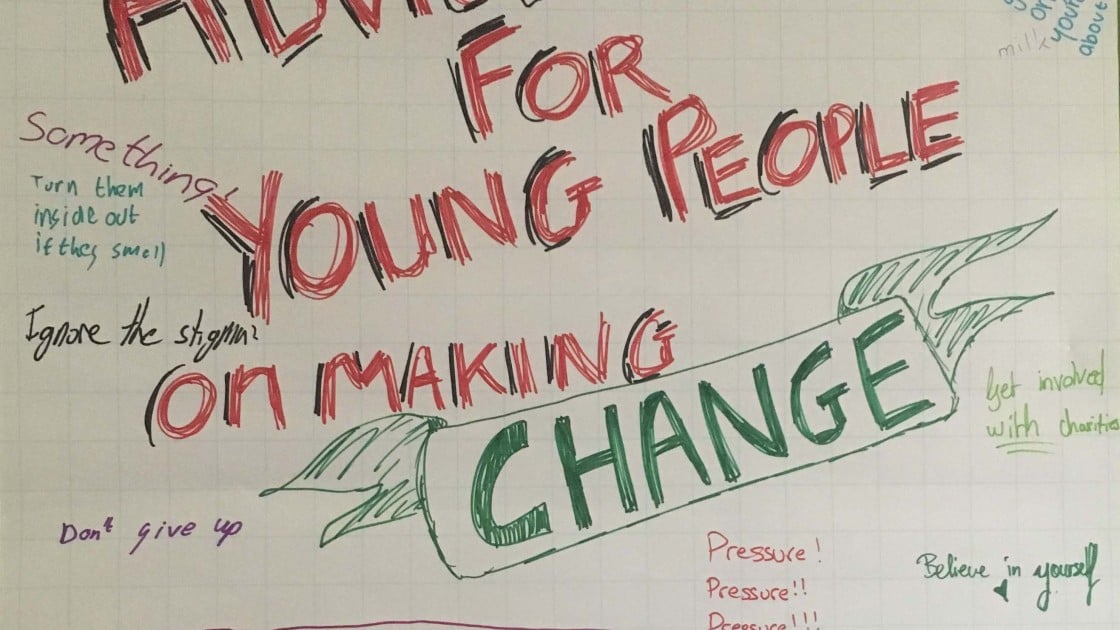 FOR
YOUNG PEOPLE
on MAKING
CHANGE
milk
on
your
about
Something!
Turn them
inside out
if they smell
Ignore the stigma
Get involved
with charities
Don't give up
Pressure!
Pressure!!
Pressure!!!
Believe in yourself